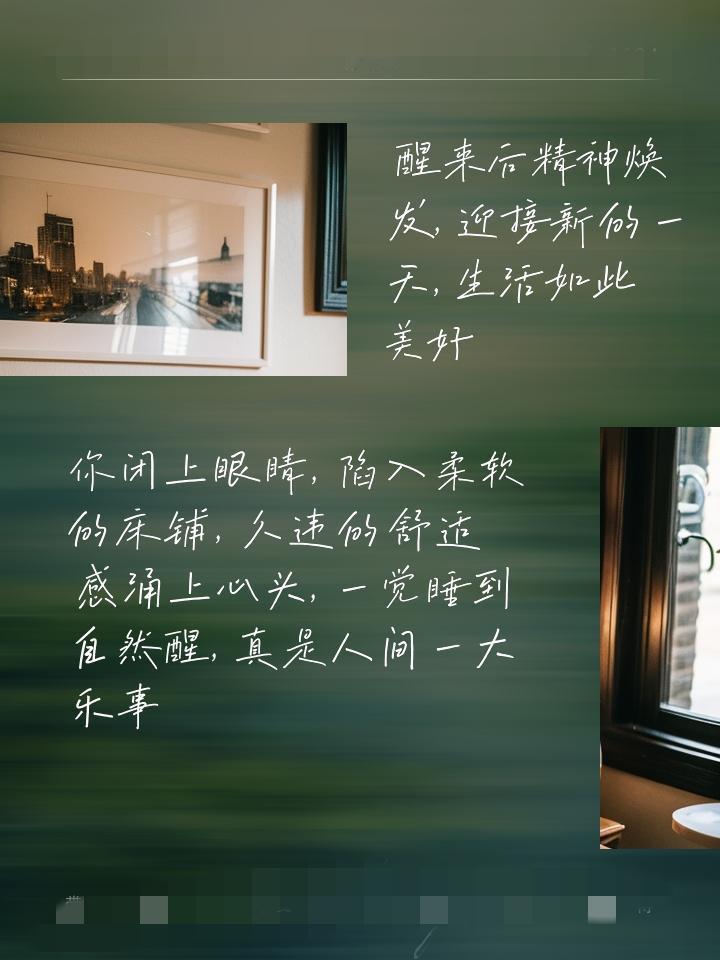 醒来后精神焕
发,迎接新的一
天,生活如此
美好
你闭上眼睛,陷入柔软
的床铺,久违的舒适
感涌上心头,一觉睡到
自然醒,真是人间一大
乐事